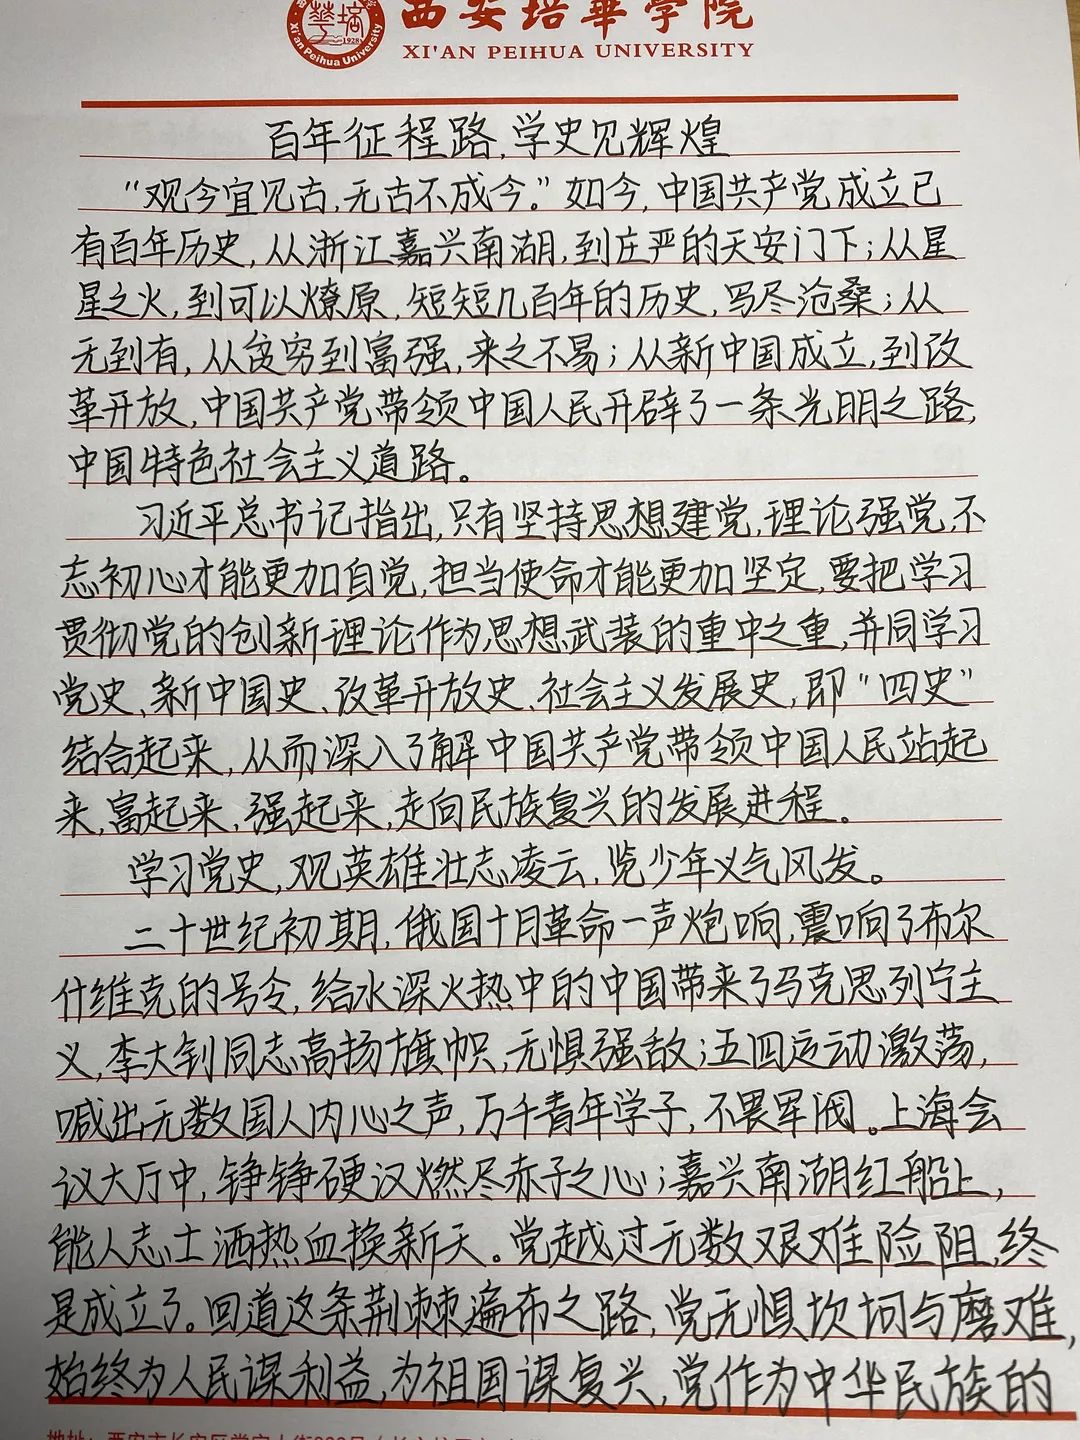 西安培華学院
XI'AN PEIHUA UNIVERSITY
1928
Xi'an Peihua University
百年征程路,学史见辉煌
“观今宜见古,无古不成今。”如今,中国共产党成立已
有百年历史,从浙江嘉兴南湖,到庄严的天安门下;从星
星之火,到可以燎原,短短几百年的历史,写尽沧桑;从
无到有,从贫穷到富强,来之不易;从新中国成立,到改
革开放,中国共产党带领中国人民开辟了一条光明之路,
中国特色社会主义道路。
习近平总书记指出,只有坚持思想建党,理论强党,不
忘初心才能更加自觉,担当使命才能更加坚定,要把学习
贯彻党的创新理论作为思想武装的重中之重,并同学习
党史、新中国史、改革开放史、社会主义发展史,即“四史”
结合起来,从而深入了解中国共产党带领中国人民站起
来,富起来,强起来,走向民族复兴的发展进程。
学习党史,观英雄壮志凌云,览少年义气风发。
二十世纪初期,俄国十月革命一声炮响,震响了布尔
什维克的号令,给水深火热中的中国带来了马克思列宁主
义,李大钊同志高扬旗帜,无惧强敌;五四运动激荡,
喊出无数国人内心之声,万千青年学子,不畏军阀。上海会
议大厅中,铮铮硬汉燃尽赤子之心;嘉兴南湖红船上,
能人志士洒热血换新天。党越过无数艰难险阻,终
是成立了。回道这条荆棘遍布之路,党无惧坎坷与磨难,
始终为人民谋利益,为祖国谋复兴,党作为中华民族的